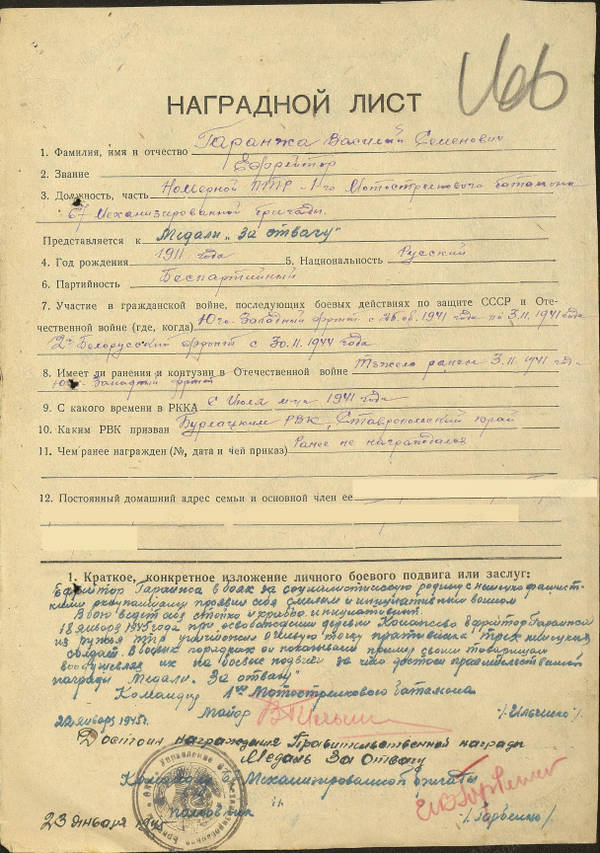 166
НАГРАДНОЙ ЛИСТ
1. Фамилия, имя и отчество Гаранжа Василий Семенович
2. Звание Ефрейтор
3. Должность, часть Номерной ПТР 1го Мотострелкового батальона
67 Механизированной бригады.
Представляется к Медали „За отвагу"
4. Год рождения 1911 года 5. Национальность Русский
6. Партийность Беспартийный
7. Участие в гражданской войне, последующих боевых действиях по защите СССР и Оте-
чественной войне (где, когда) Юго-Западный фронт с 1941 года по 3.11.1941 года
2й Белорусский фронт с 30.11.1944 года
8. Имеет ли ранения и контузии в Отечественной войне Тяжело ранен 3.11.1941 год-
Юго-Западный фронт
9. С какого времени в РККА с Июля м-ца 1941 года
10. Каким РВК призван РВК, Ставропольский край
11. Чем ранее награжден (№, дата и чей приказ) Ранее не награждался
12. Постоянный домашний адрес семьи и основной член ее
1. Краткое, конкретное изложение личного боевого подвига или заслуг:
Ефрейтор Гаранжа в боях за социалистическую родину с немецко фашист-
скими оккупантами проявил себя смелым и инициативным воином
В бою ведет себя стойко храбро и инициативно.
18 января 1945 года при освобождении деревни Ефрейтор Гаранжа
из ружья ПТР уничтожил огневую точку противника и трех немецких
солдат. В боевых порядках он показывал пример своим товарищам
воодушевляя их на боевые подвиги за что достоин правительственной
награды Медали „За отвагу"
Командир 1го Мотострелкового батальона
22 января 1945г. Майор /Ильченко/.
Достоин награждения Правительственной награды
Медаль За Отвагу
Командир 67 Механизированной бригады
полковник /Горбенко/
23 января 1945